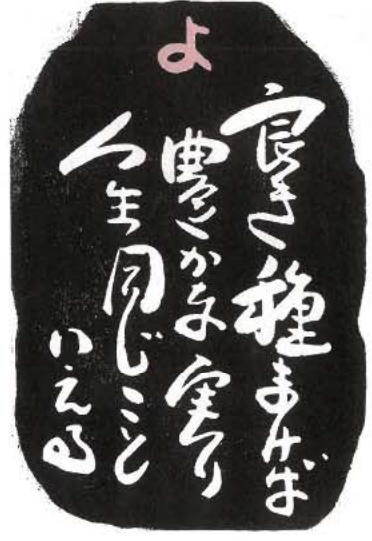 よ
良き種まけば
豊かな実り
人生同じこと
いえる